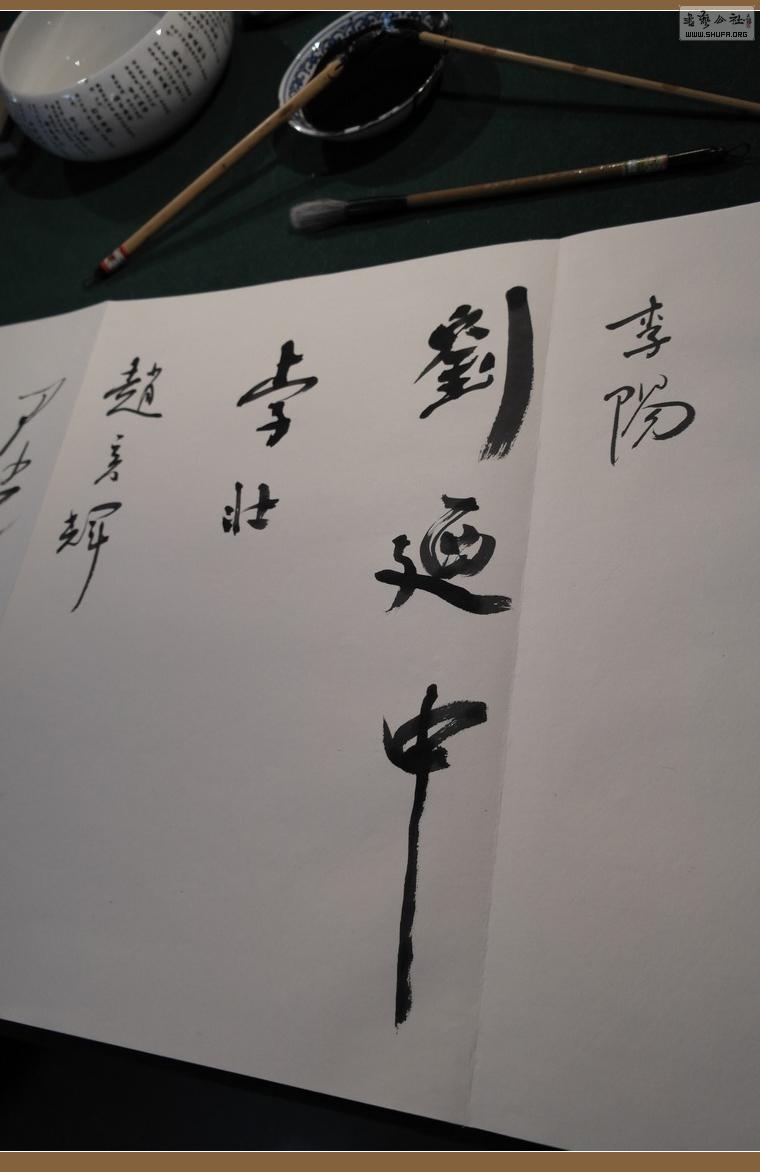 書藝公社
WWW.SHUFA.ORG
李陽
劉廼中
李壯
趙彥輝